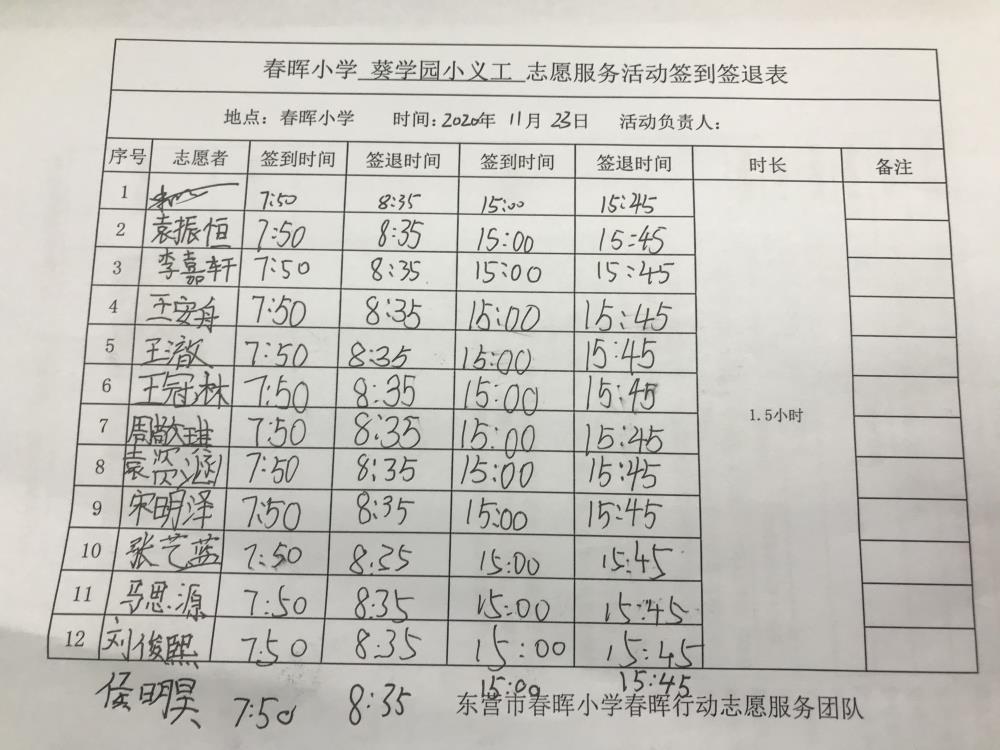 春晖小学 葵学园小义工 志愿服务活动签到签退表
地点：春晖小学 时间：2020年 11月 23日 活动负责人：
序号 志愿者 签到时间 签退时间 签到时间 签退时间 时长 备注
1 7:50 8:35 15:00 15:45
2 袁振恒 7:50 8:35 15:00 15:45
3 李嘉轩 7:50 8:35 15:00 15:45
4 王安舟 7:50 8:35 15:00 15:45
5 王澈 7:50 8:35 15:00 15:45
6 王冠林 7:50 8:35 15:00 15:45
1.5小时
7 周敬琪 7:50 8:35 15:00 15:45
8 袁 涵 7:50 8:35 15:00 15:45
9 宋明泽 7:50 8:35 15:00 15:45
10 张艺蓝 7:50 8:35 15:00 15:45
11 马思源 7:50 8:35 15:00 15:45
12 刘俊熙 7:50 8:35 15:00 15:45
侯明昊 7:50 8:35 15:00 15:45
东营市春晖小学春晖行动志愿服务团队